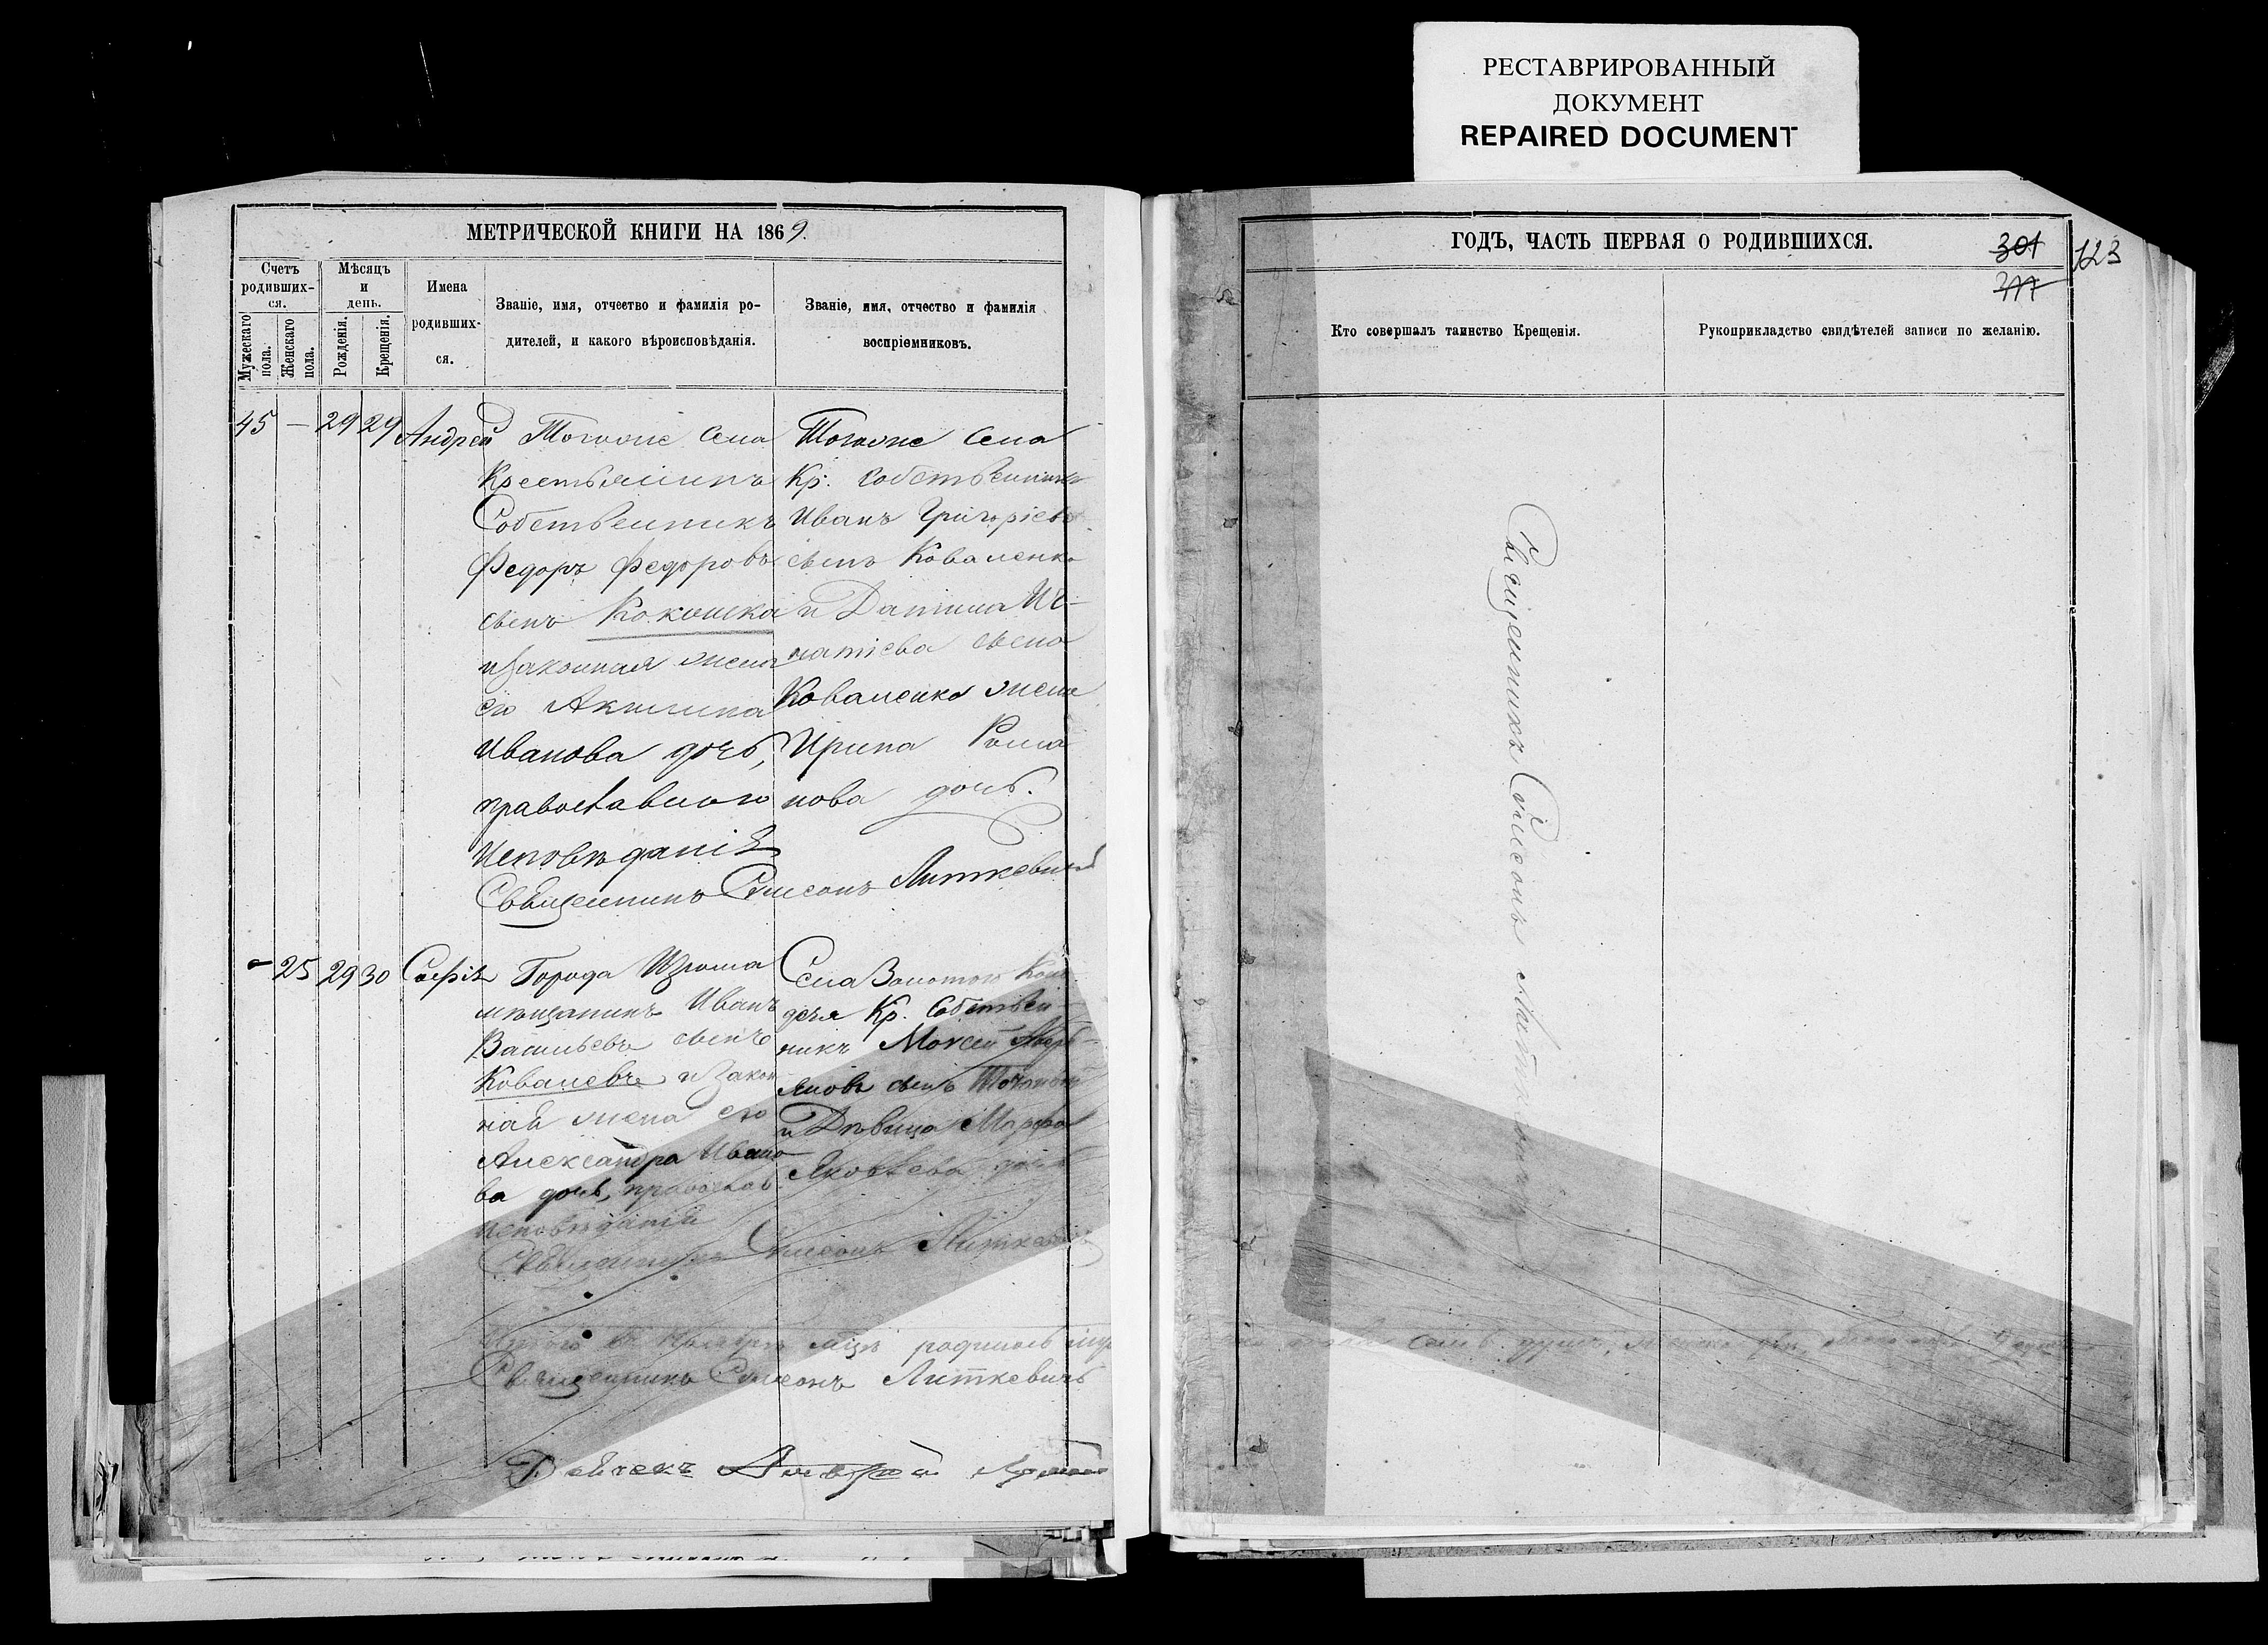 РЕСТАВРИРОВАННЫЙ
ДОКУМЕНТ
REPAIRED DOCUMENT
МЕТРИЧЕСКОЙ КНИГИ НА 1869.
Счетъ
родивших-
ся.
Мужескаго
пола.
Женскаго
пола.
Мѣсяцъ
и
день.
Рожденія.
Крещенія.
Имена
родивших-
ся.
Званіе, имя, отчество и фамилія ро-
дителей, и какого вѣроисповѣданія.
Званіе, имя, отчество и фамилія
воспріемниковъ.
45 — 29 29 Андрей
Тогоже Села
Крестьянинъ
Собственникъ
Федоръ Федоровъ
сынъ Кокошка
и Законная жена
его Акилина
Иванова дочь,
православнаго
Исповѣданія
Тогоже Села
Кр. Собственникъ
Иванъ Григоріевъ
сынъ Коваленко
и Данiила Иг-
натіева сына
Коваленка жена
Ирина Рома
нова дочь.
Священникъ Симеонъ Литкевичъ
- 25 29 30 Софія
Города Изюма
мѣщанинъ Иванъ
Васильевъ сынъ
Ковалевъ и Закон
ная жена его
Александра Ивано
ва дочь, православ.
Исповѣданія
Села Золотого Коло
дезя Кр. Собствен-
никъ Моисей
яновъ сынъ
и Дѣвица Марфа
Яковлева дочь
Священникъ Симеонъ Литкевичъ
родилось
Священникъ Симеонъ Литкевичъ
Дьячекъ Андрей
ГОДЪ, ЧАСТЬ ПЕРВАЯ О РОДИВШИХСЯ.
301
123
Кто совершалъ таинство Крещенія.
Рукоприкладство свидѣтелей записи по желанію.
Священникъ Симеонъ Литкевичъ
семь душъ,